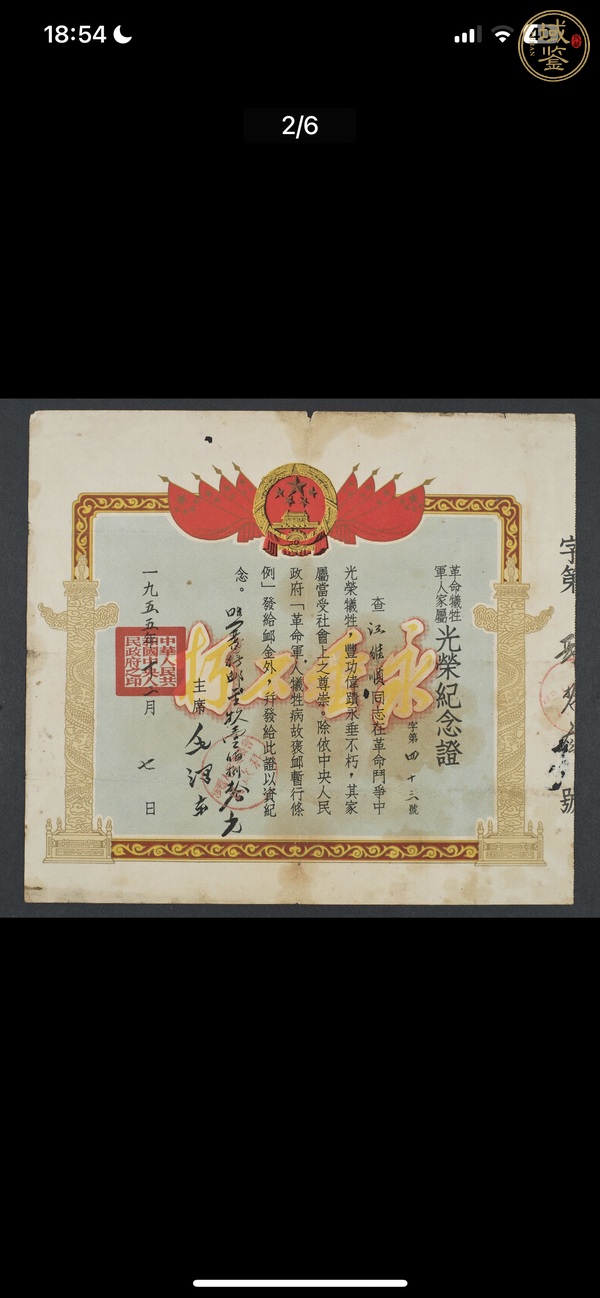 18:54
域鉴
2/6
革命犧牲
軍人家屬
光榮紀念證
字第四十三號
查江維順同志在革命鬥爭中
光榮犧牲,豐功偉蹟永垂不朽,其家
屬當受社會上之尊崇。除依中央人民
政府「革命軍人犧牲病故褒卹暫行條
例」發給卹金外,幷發給此證以資紀
念。
永垂不朽
主席 毛澤东
中華人民共
和國中央人
民政府之印
一九五五年十一月七日
字第
號